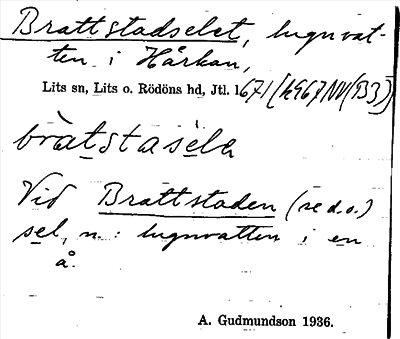 Brattstadselet, lugnvat-
ten i Hårkan,
Lits sn, Lits o. Rödöns hd, Jtl. 1671 [k967NV(B3)]
bràtstasèla
Vid Brattstaden (se d.o.)
sel, n.: lugnvatten i en
å.
A. Gudmundson 1936.